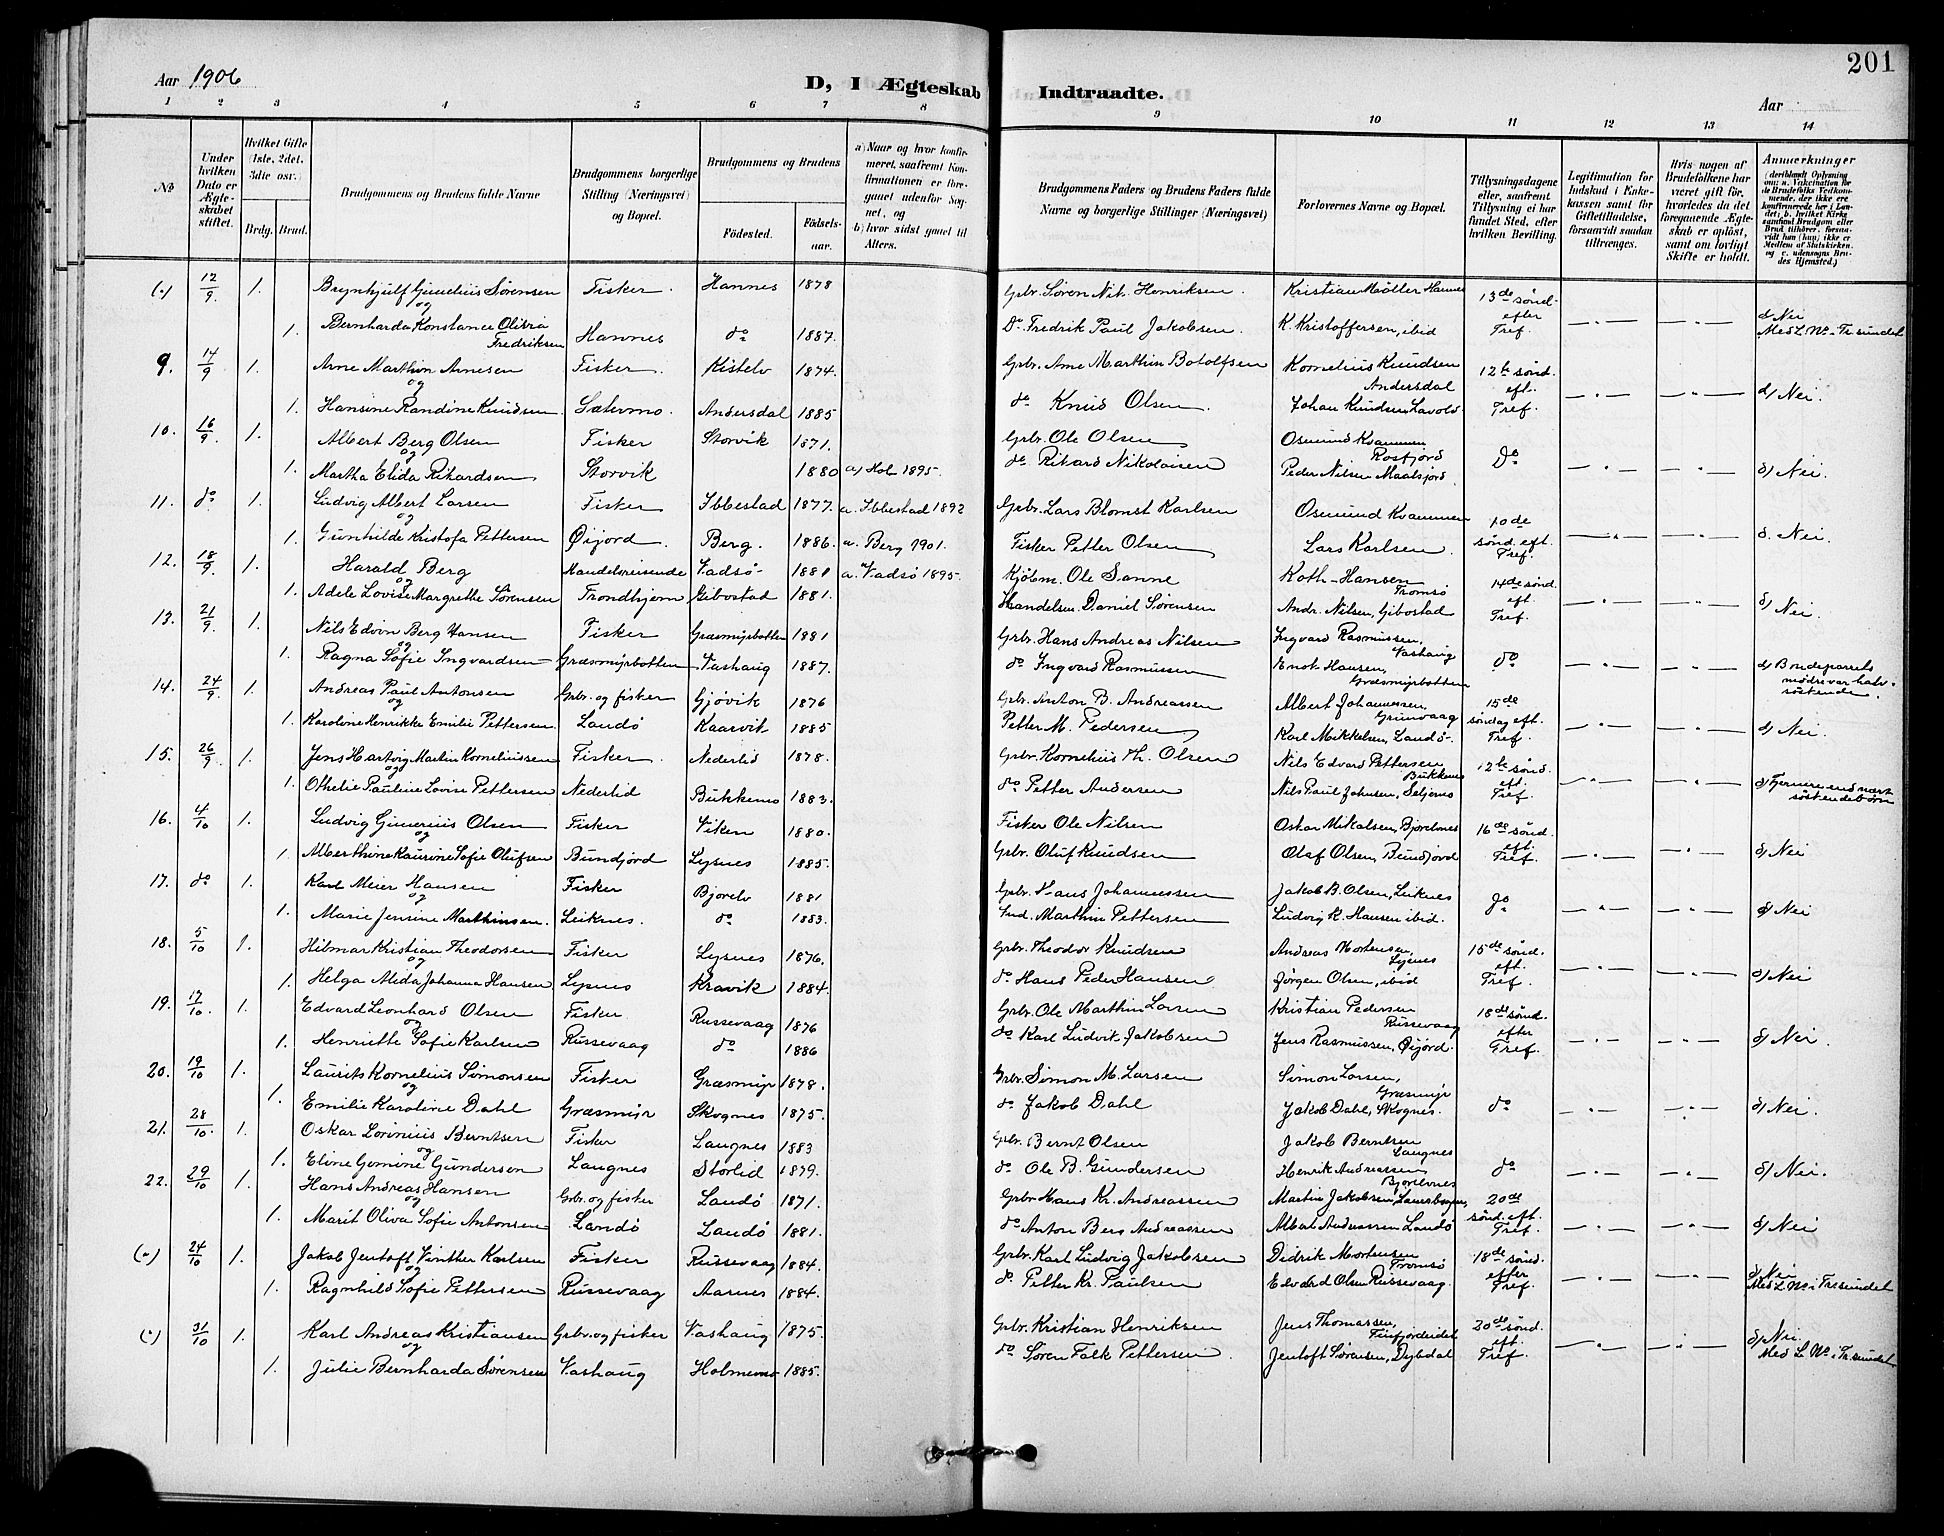 201
Aar 1906
D, I Ægteskab Indtraadte.
Aar
1 2 3 4 5 6 7 8 9 10 11 12 13 14
No
Under hvilken Dato er Ægteskabet stiftet.
Hvilket Gifte (1ste, 2det, 3die osv.)
Brdg. Brud.
Brudgommens og Brudens fulde Navne
Brudgommens borgerlige Stilling (Næringsvei) og Bopæl.
Brudgommens og Brudens
Fødested.
Fødsels-aar.
a) Naar og hvor konfirmeret, saafremt Konfirmationen er foregaaet udenfor Sognet, og
b) hvor sidst gaaet til Alters.
Brudgommens Faders og Brudens Faders fulde Navne og borgerlige Stillinger (Næringsvei)
Forlovernes Navne og Bopæl.
Tillysningsdagene eller, saafremt Tillysning ei har fundet Sted, efter hvilken Bevilling.
Legitimation for Indskud i Enkekassen samt for Giftetilladelse, forsaavidt saadan tiltrænges.
Hvis nogen af Brudefolkene har været gift før, hvorledes da det foregaaende Ægteskab er opløst, samt om lovligt Skifte er holdt.
Anmerkninger (deriblandt Oplysning om: a. Vaccination for de Brudefolks Vedkommende, der ikke ere konfirmerede her i Landet; b. hvilket Kirkesamfund Brudgom eller Brud tilhører, forsaavidt han (hun) ikke er Medlem af Statskirken, og c. udensogns Brudes Hjemsted.)
(-) 12/9 1. Brynhjulf Gunelius Sørensen Fisker. Hannes 1878 Grbr. Søren Nik. Henriksen Kristian Møller Hannes 13de sønd. d) Nei
og efter
1. Bernharda Konstance Olivia Fredriksen Hannes do 1887. Do. Fredrik Paul Jakobsen. K. Kristoffersen, ibid Tref. Med L. No i Tr.sundet
9. 14/9 1. Arne Marthin Arnesen Fisker. Kistelv 1874. Grbr. Arne Marthin Botolfsen Kornelius Knudsen Andersdal 12te sønd. d) Nei.
og eft.
1. Hansine Randine Knudsen Sætermo. Andersdal 1885 do Knud Olsen. Johan Knudsen Lavold. Tref.
10. 16/9 1. Albert Berg Olsen Fisker Storvik 1871. Grbr. Ole Olsen Osmund Kvammen Rossfjord Do d) Nei.
og
1. Martha Elida Rikardsen Storvik 1880 a) Hol 1895. do Rikard Nikolaisen Peder Nilsen Maalsjord
11. do 1. Ludvig Albert Larsen Fisker Ibbestad 1877. a. Ibbestad 1892 Grbr. Lars Blomst Karlsen Osmund Kvammen 10de d. Nei.
og sønd. eft.
1. Gunhilde Kristofa Pettersen Øijord. Berg. 1886. a. Berg 1901. Fisker Petter Olsen Lars Karlsen. Tref.
12. 18/9 1. Harald Berg Handelsreisende Vadsø 1881 a. Vadsø 1895. Kjøbm. Ole Sanne Roth-Hansen Tromsø 14de sønd. d) Nei
og eft.
1. Adele Lovise Margrethe Sørensen Trondhjem Gibostad 1881. Handelsm. Daniel Sørensen Andr. Nilsen, Gibostad Tref.
13. 21/9 1. Nils Edvin Berg Hansen Fisker Græsmyrbotten 1881 Grbr. Hans Andreas Nilsen Ingvard Rasmussen, Vashaug do d) Bondeparrets mødre var halvsøskende.
og
1. Ragna Sofie Ingvardsen Græsmyrbotten Vashaug 1887. do Ingvard Rasmussen Enok Hansen, Græsmyrbotten
14. 24/9 1. Andreas Paul Antonsen Grbr. og fisker Gjøvik 1876 Grbr. Anton B. Andreassen Albert Johannessen, Grunvaag 15de d) Nei.
og søndag eft.
1. Karoline Henrikke Emilie Pettersen Landø Kaarvik 1885 Petter M. Pedersen Karl Mikkelsen, Landø. Tref.
15. 26/9 1. Jens Hartvig Martin Korneliussen Fisker. Nederlid 1878. Grbr. Kornelius Th. Olsen Nils Edvard Pettersen Bukkenes 12te sønd. d) Fjernere end nært søskendebørn
og eft.
1. Othelie Pauline Lovise Pettersen Nederlid Bukkemo 1883. do Petter Andersen Nils Paul Johnsen, Seljemo Tref.
16. 4/10 1. Ludvig Gimerius Olsen Fisker Viken 1880. Fisker Ole Nilsen Oskar Mikalsen, Bjorelvnes 16de sønd. d) Nei
og eft.
1. Alberthine Kaurine Sofie Olufsen Bundjord Lysnes 1885. Grbr. Oluf Knudsen Olaf Olsen, Bundfjord Tref.
17. do 1. Karl Meier Hansen Fisker Bjorelv 1881 Grbr. Hans Johannessen Jakob B. Olsen, Leiknes Do d) Nei
og
1. Marie Jensine Marthinsen. Leiknes. do 1883. Ind. Marthin Pettersen Ludvig K. Hansen ibid.
18. 5/10 1. Hilmar Kristian Theodorsen Fisker Lysnes 1876. Grbr. Theodor Knudsen Andreas Mortensen, Lysnes 15de sønd. d) Nei
og eft.
1. Helga Alida Johanna Hansen Lysnes Kravik 1884. do Hans Peder Hansen Jørgen Olsen, ibid Tref.
19. 17/10 1. Edvard Leonhard Olsen Fisker. Russevaag 1876 Grbr. Ole Marthin Larsen Kristian Pedersen Russevaag 18de sønd. d) Nei.
og efter
1. Henriette Sofie Karlsen Russevaag do 1886 do Karl Ludvik Jakobsen Jens Rasmussen, Øijord. Tref.
20. 19/10 1. Laurits Kornelius Simonsen Fisker Græsmyr 1878. Grbr. Simon M. Larsen Simon Larsen, Græsmyr do d) Nei.
og
1. Emilie Karoline Dahl Græsmyr Skognes 1875. do Jakob Dahl Jakob Dahl, Skognes.
21. 28/10 1. Oskar Lorinius Berntsen Fisker Laugnes 1883 Grbr. Bernt Olsen Jakob Berntsen Laugnes do d) Nei.
og
1. Eline Gomine Gundersen Laugnes Storlid 1879. do Ole B. Gundersen Henrik Andreassen, Bjorelvnes
22. 29/10 1. Hans Andreas Hansen Grbr. og fisker Landø 1871. Grbr Hans Kr. Andreassen Martin Jakobsen, 20de d) Nei
og sønd. eft.
1. Marit Oliva Sofie Antonsen Landø Landø 1881. do Anton Berg Andreassen Albert Andreassen Landø Tref.
(-) 24/10 1. Jakob Jentoft Vinther Karlsen Fisker Russevaag 1884. Grbr. Karl Ludvig Jakobsen Didrik Mortensen Tromsø 18de sønd. d) Nei
og efter
1. Ragnhild Sofie Pettersen Russevaag Aarnes 1884. do Petter Kr. Paulsen Edvard Olsen Russevaag. Tref. Med L. No i Tr.sundet
(-) 31/10 1. Karl Andreas Kristiansen Grbr. og fisker Vashaug 1875. Grbr. Kristian Henriksen Jens Thomassen, Finfjordeidet 20de sønd. d) Nei.
og eft.
1. Julie Bernharda Sørensen Vashaug Holmenes 1885. do Søren Falk Pettersen. Jentoft Sørensen, Dybdal Tref. Med L. No i Tr.sundet